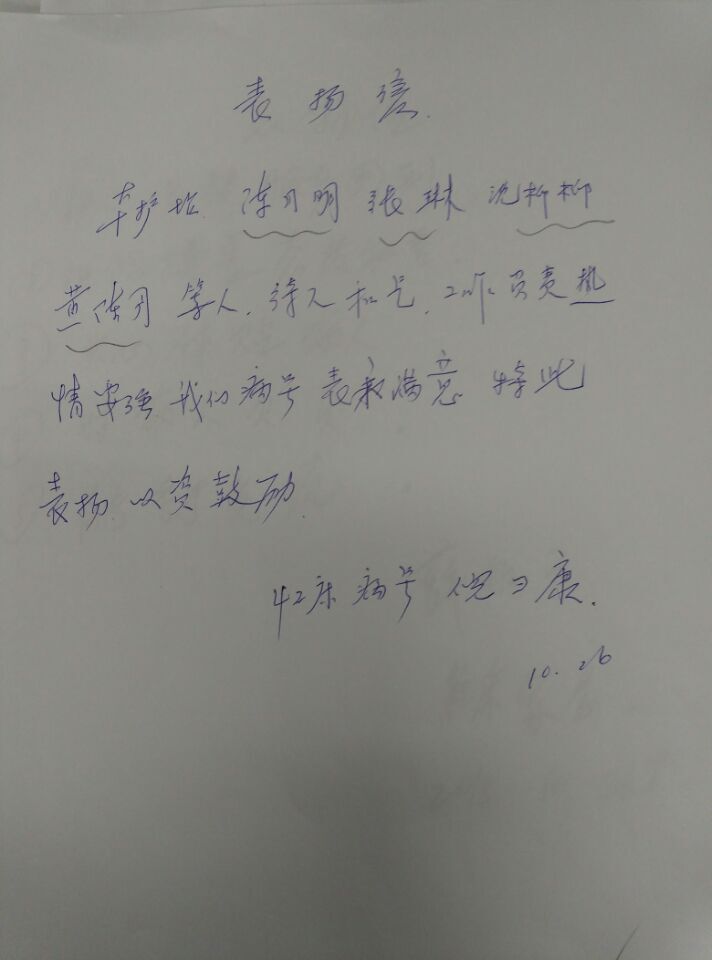 表扬信.
本护站 陈月明 张琳 沈柳柳
黄陈丹 等人, 待人和气, 工作负责热
情 我们病号表示满意 特此
表扬 以资鼓励.
42床病号 倪 康.
10.26